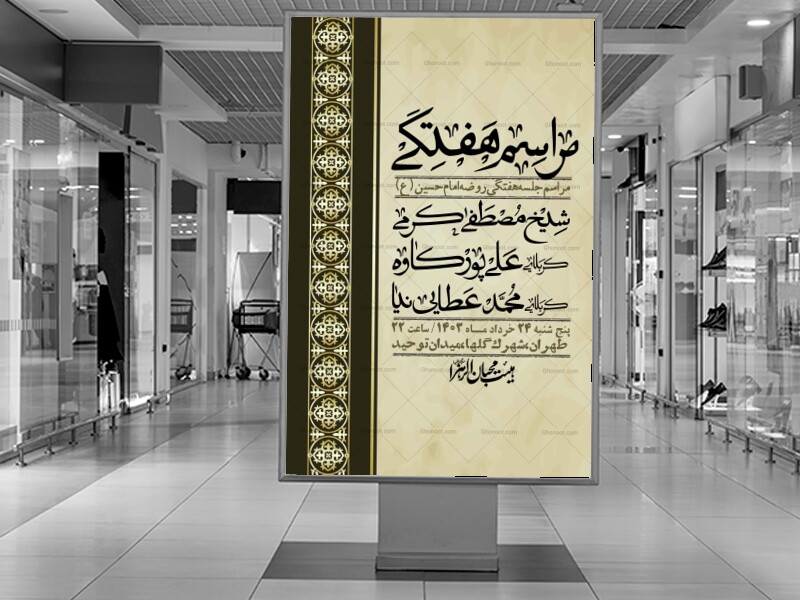 مراسم هفتگی
مراسم جلسه هفتگی روضه امام حسین (ع)
شیخ مصطفی کرمی
کربلایی علی پورکاوه
کربلایی محمد عطایی نیا
پنج شنبه ۲۴ خرداد مـاه ۱۴۰۳ / ساعت ۲۲
طهران، شهرک گلها، میدان توحید
هیئت محبان الزهرا